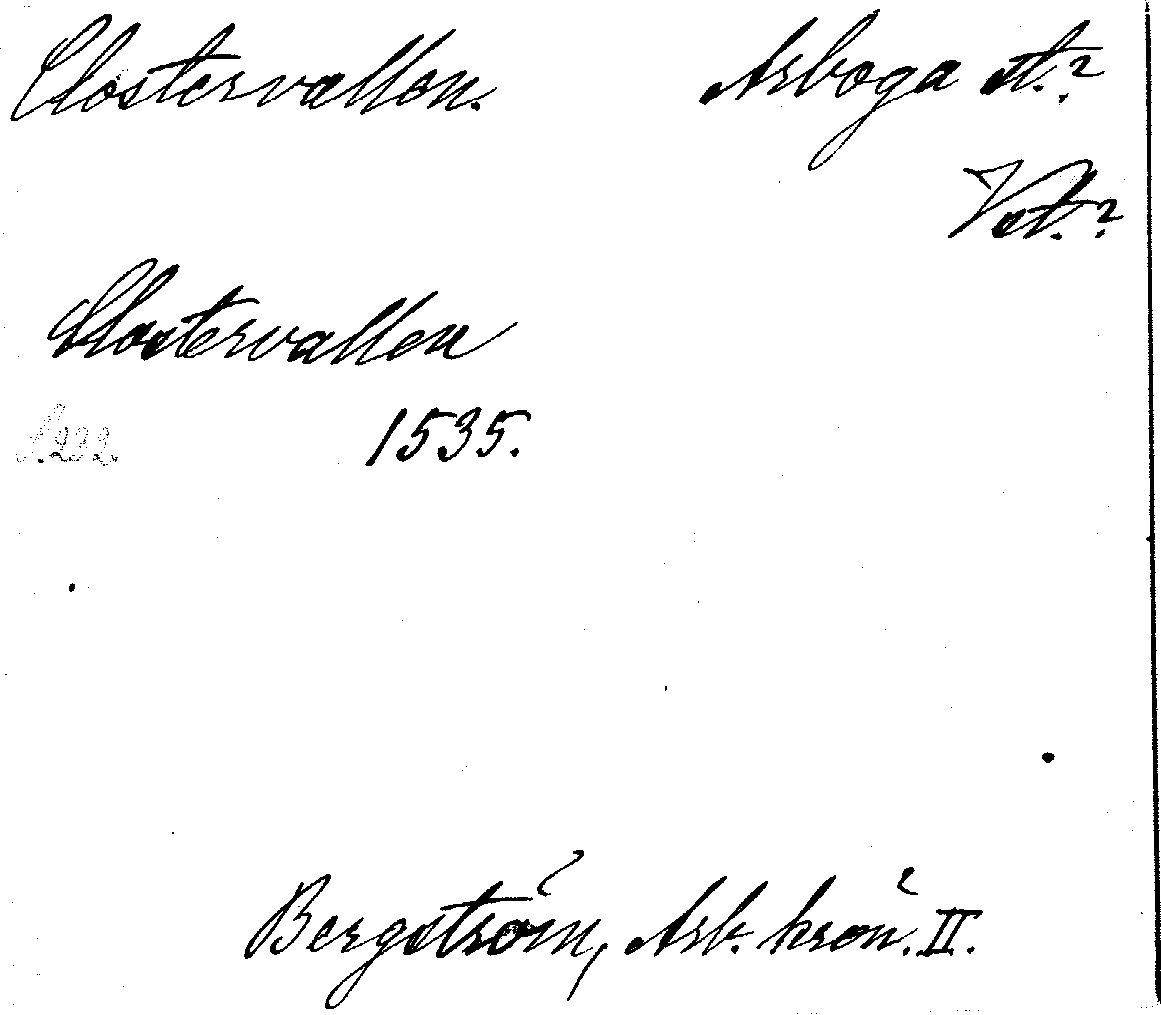 Clostervallen. Arboga st.?
Vst.?
Clostervallen
S.232. 1535.
Bergström, Arb. krön. II.